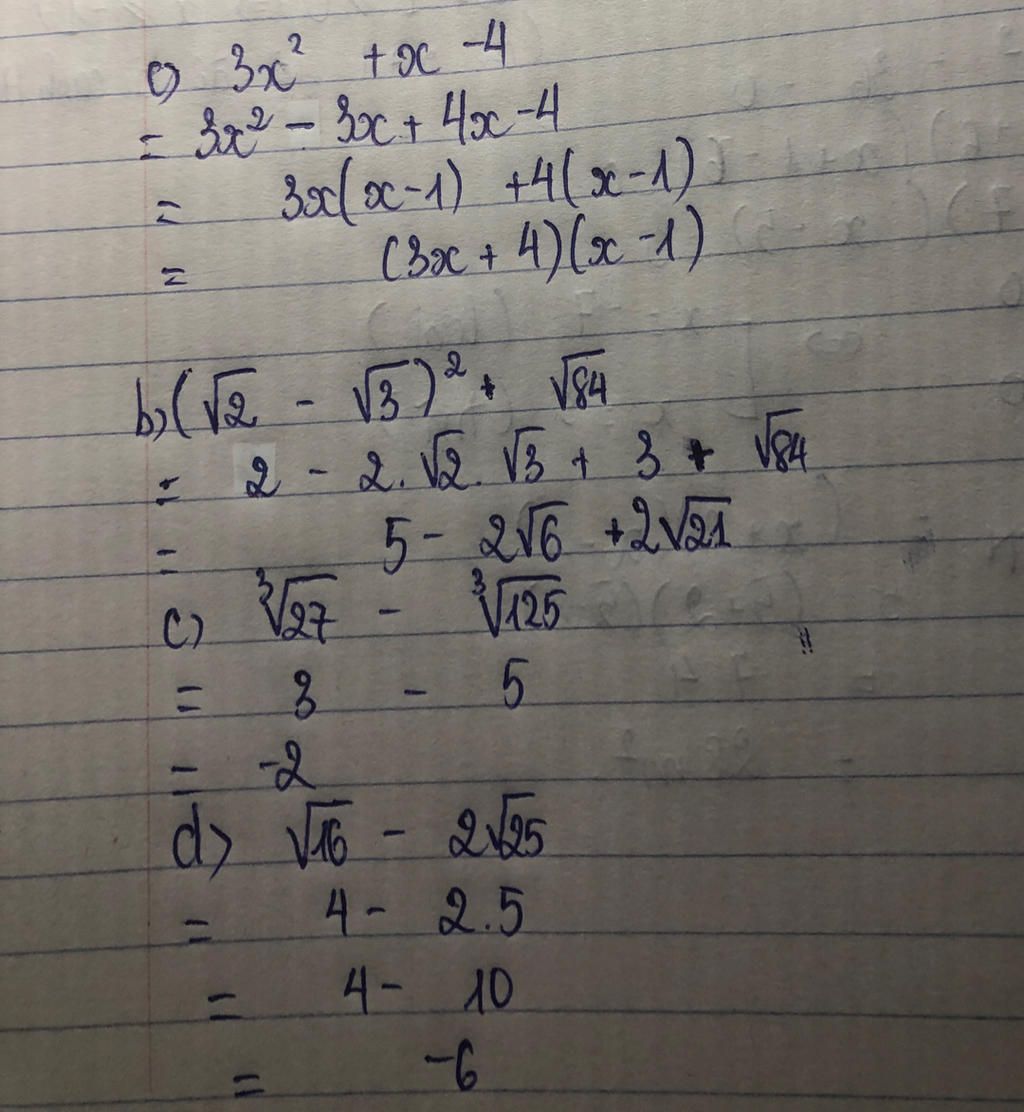 c) 3x² + x - 4
= 3x² - 3x + 4x - 4
= 3x(x-1) + 4(x-1)
= (3x + 4)(x - 1)
b) (√2 - √3)² + √84
= 2 - 2.√2.√3 + 3 + √84
= 5 - 2√6 + 2√21
c) ∛27 - ∛125
= 3 - 5
= -2
d) √16 - 2√25
= 4 - 2.5
= 4 - 10
= -6